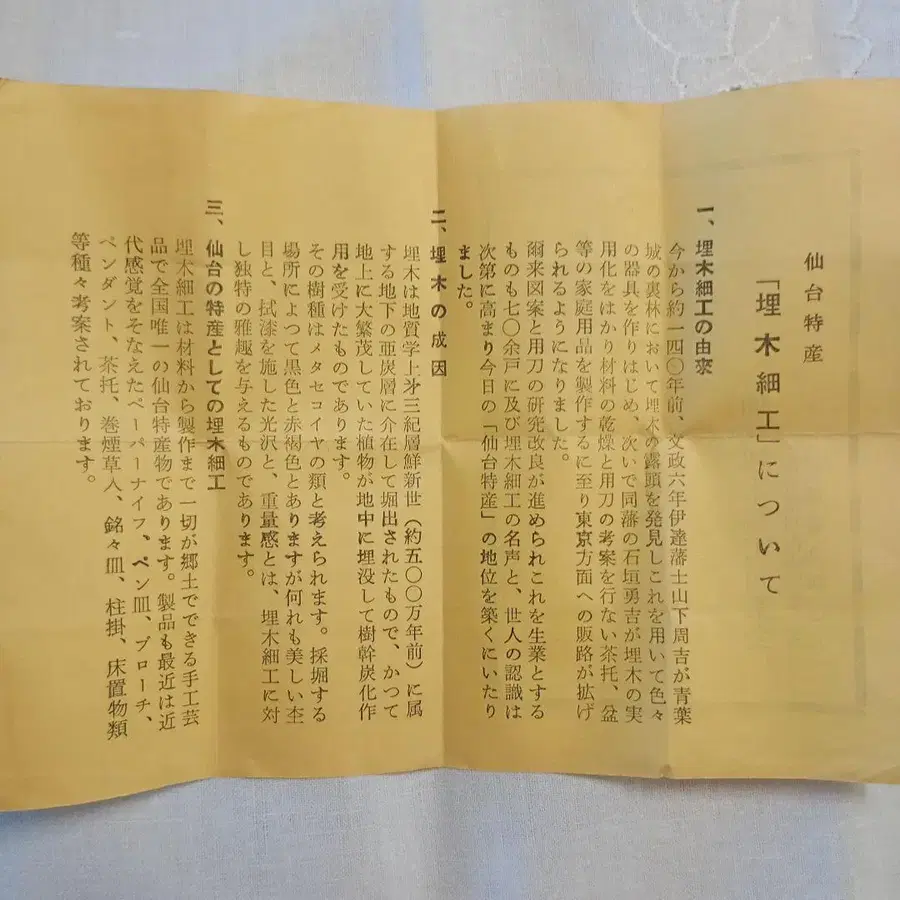 仙台特産
「埋木細工」について
一、埋木細工の由來
今から約一四〇年前、文政六年伊達藩士山下周吉が青葉
城の裏林において埋木の露頭を発見しこれを用いて色々
の器具を作りはじめ、次いで同藩の石垣勇吉が埋木の実
用化をはかり材料の乾燥と用刀の考案を行ない茶托、盆
等の家庭用品を製作するに至り東京方面への販路が拡げ
られるようになりました。
爾来図案と用刀の研究改良が進められこれを生業とする
ものも七〇余戸に及び埋木細工の名声と、世人の認識は
次第に高まり今日の「仙台特産」の地位を築くにいたり
ました。
二、埋木の成因
埋木は地質学上第三紀層鮮新世（約五〇〇万年前）に属
する地下の亜炭層に介在して堀出されたもので、かつて
地上に大繁茂していた植物が地中に埋没して樹幹炭化作
用を受けたものであります。
その樹種はメタセコイヤの類と考えられます。採堀する
場所によつて黒色と赤褐色とありますが何れも美しい杢
目と、拭漆を施した光沢と、重量感とは、埋木細工に対
し独特の雅趣を与えるものであります。
三、仙台の特産としての埋木細工
埋木細工は材料から製作まで一切が郷土でできる手工芸
品で全国唯一の仙台特産物であります。製品も最近は近
代感覚をそなえたペーパーナイフ、ペン皿、ブローチ、
ペンダント、茶托、巻煙草入、銘々皿、柱掛、床置物類
等種々考案されております。